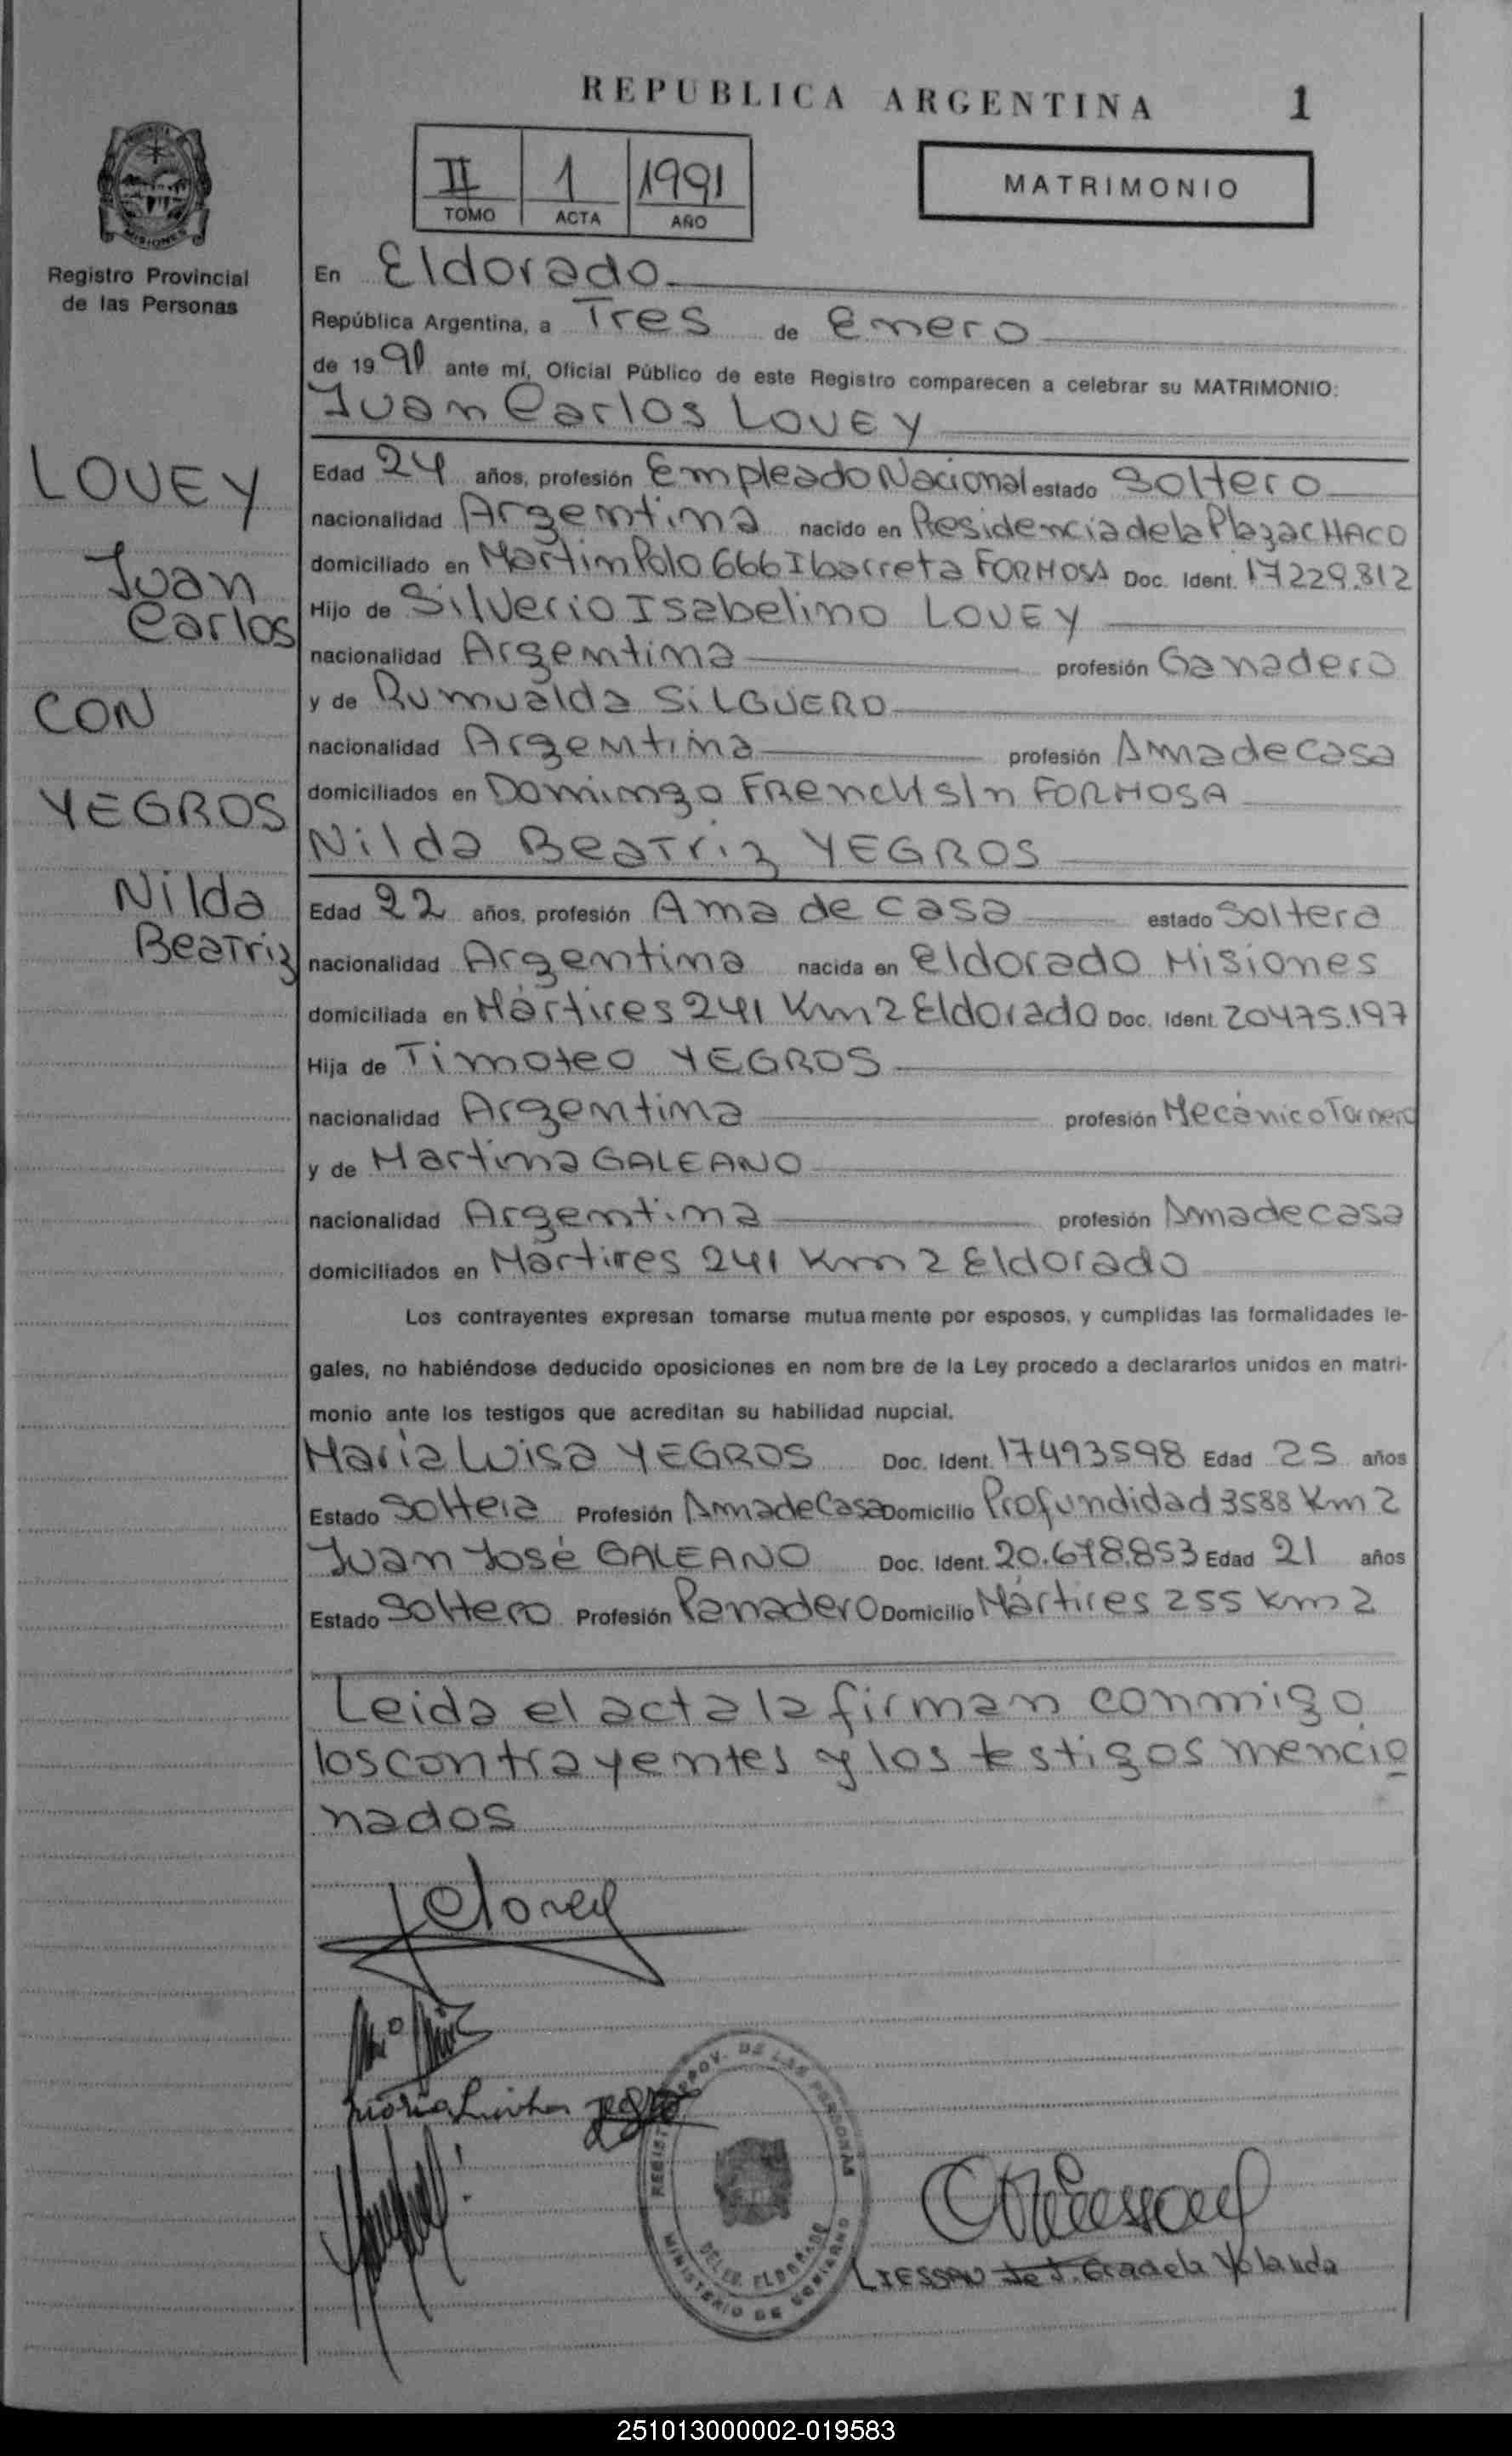 REPUBLICA ARGENTINA 1
II 1 1991
TOMO ACTA AÑO
MATRIMONIO
MISIONES
Registro Provincial
de las Personas
LOVEY
Juan
Carlos
CON
YEGROS
Nilda
Beatriz
En Eldorado
República Argentina, a Tres de Enero
de 19 91 ante mí, Oficial Público de este Registro comparecen a celebrar su MATRIMONIO:
Juan Carlos LOVEY
Edad 24 años, profesión Empleado Nacional estado Soltero
nacionalidad Argentina nacido en Residencia de la Plaza CHACO
domiciliado en Martin Polo 666 Ibarreta FORMOSA Doc. Ident. 17229.812
Hijo de Silverio Isabelino LOVEY
nacionalidad Argentina profesión Ganadero
y de Rumualda SiLGUERO
nacionalidad Argentina profesión Ama de casa
domiciliados en Domingo FRencH s/n FORMOSA
Nilda Beatriz YEGROS
Edad 22 años, profesión Ama de casa estado Soltera
nacionalidad Argentina nacida en Eldorado Misiones
domiciliada en Mártires 241 Km 2 Eldorado Doc. Ident. 20475.197
Hija de Timoteo YEGROS
nacionalidad Argentina profesión Mecánico Tornero
y de Martina GALEANO
nacionalidad Argentina profesión Ama de casa
domiciliados en Mártires 241 Km 2 Eldorado
Los contrayentes expresan tomarse mutua mente por esposos, y cumplidas las formalidades le-
gales, no habiéndose deducido oposiciones en nom bre de la Ley procedo a declararlos unidos en matri-
monio ante los testigos que acreditan su habilidad nupcial.
María Luisa YEGROS Doc. Ident. 17493598 Edad 25 años
Estado Soltera Profesión Ama de Casa Domicilio Profundidad 3588 Km 2
Juan José GALEANO Doc. Ident. 20.678.853 Edad 21 años
Estado Soltero Profesión Panadero Domicilio Mártires 255 Km 2
Leida el acta la firman conmigo
los contrayentes y los testigos mencio
nados
JCLovey
REGISTRO PROV. DE LAS PERSONAS
DELEG. ELDORADO
MINISTERIO DE GOBIERNO
LIESSAU de J. Graciela Yolanda
251013000002-019583